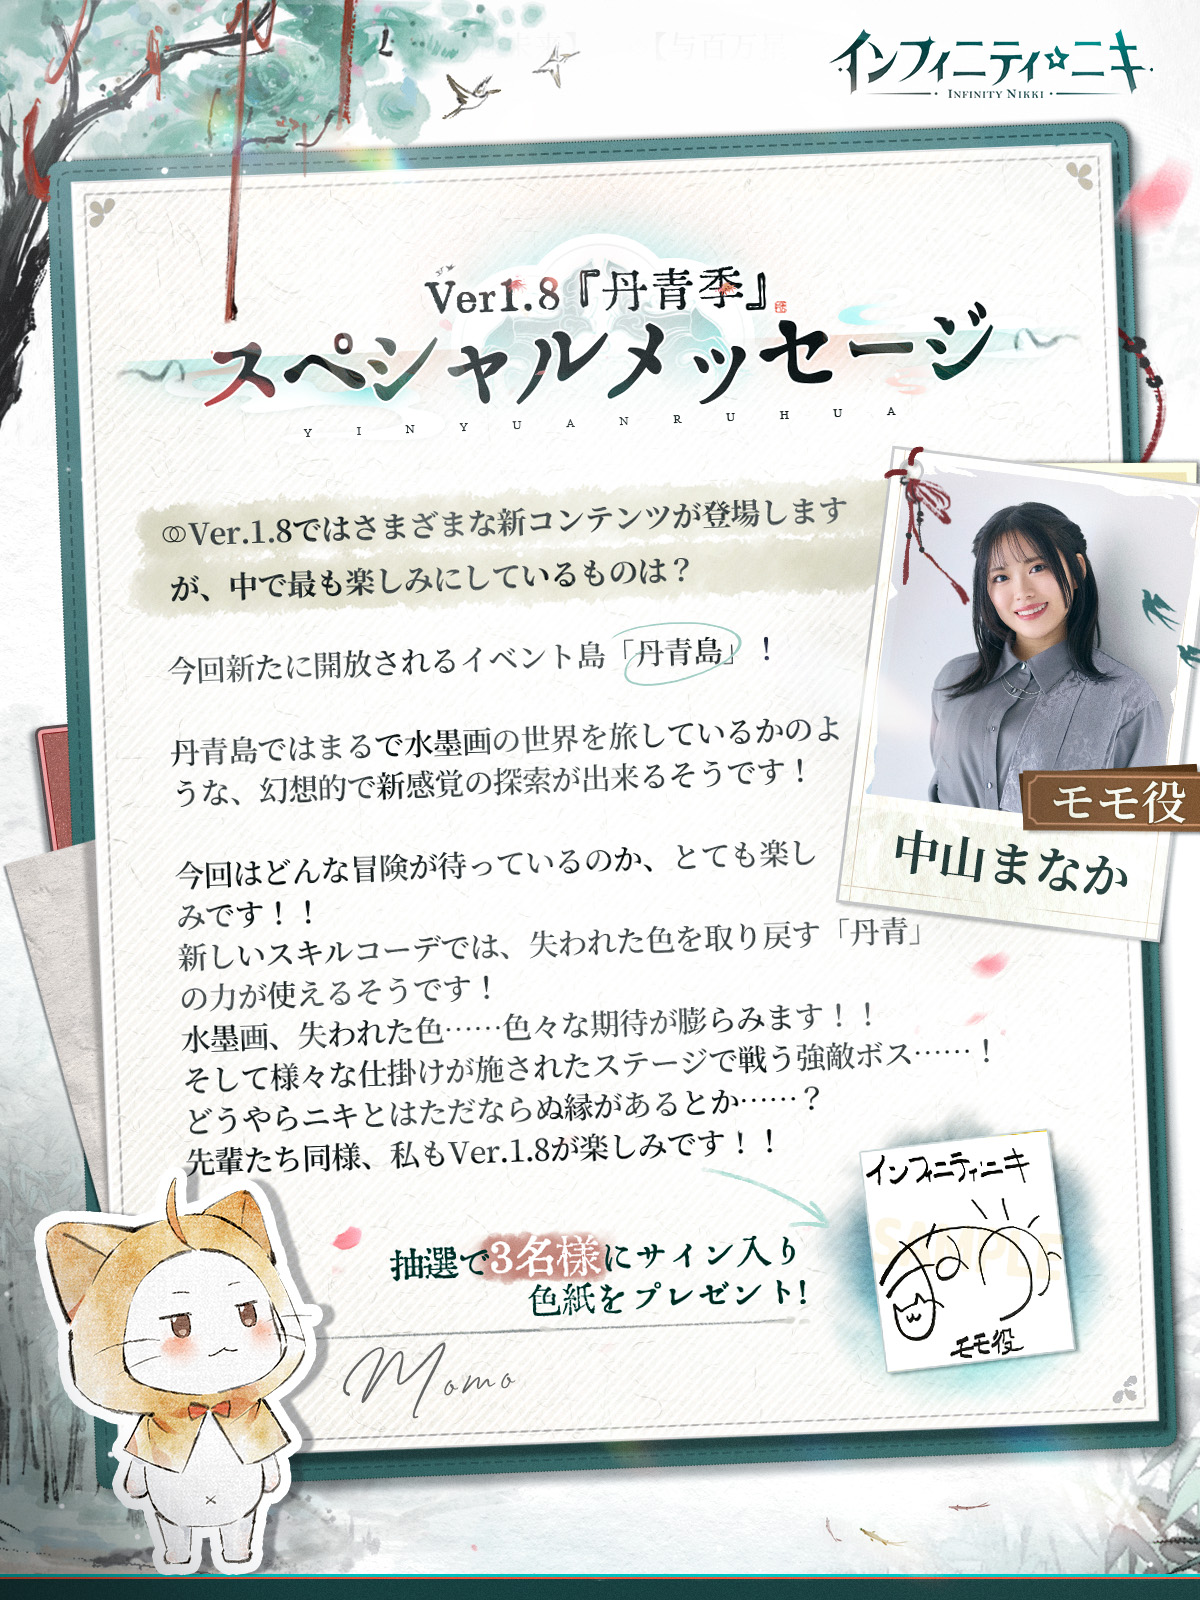 インフィニティ☆ニキ
INFINITY NIKKI
Ver1.8『丹青季』
スペシャルメッセージ
YINYUANRUHUA
Ver.1.8ではさまざまな新コンテンツが登場します
が、中で最も楽しみにしているものは？
今回新たに開放されるイベント島「丹青島」！
丹青島ではまるで水墨画の世界を旅しているかのよ
うな、幻想的で新感覚の探索が出来るそうです！
今回はどんな冒険が待っているのか、とても楽し
みです！！
新しいスキルコーデでは、失われた色を取り戻す「丹青」
の力が使えるそうです！
水墨画、失われた色……色々な期待が膨らみます！！
そして様々な仕掛けが施されたステージで戦う強敵ボス……！
どうやらニキとはただならぬ縁があるとか……？
先輩たち同様、私もVer.1.8が楽しみです！！
モモ役
中山まなか
抽選で3名様にサイン入り
色紙をプレゼント!
インフィニティニキ
SAMPLE
モモ役
Momo